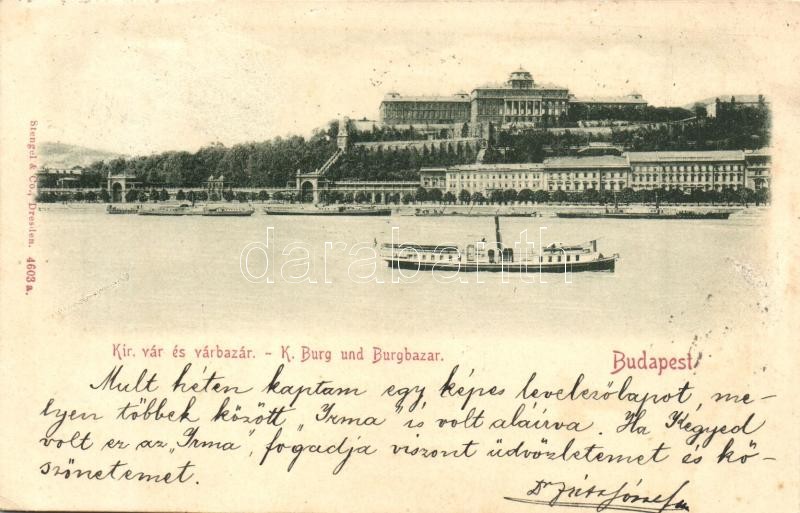 Stengel & Co., Dresden. 4603 a.
darabanth
Kir. vár és várbazár. - K. Burg und Burgbazar.
Budapest
Mult héten kaptam egy képes levelezőlapot, me-
lyen többek között „Irma” is volt aláirva. Ha Kégyed
volt ez az „Irma”, fogadja viszont üdvözletemet és kö-
szönetemet.
Dr József